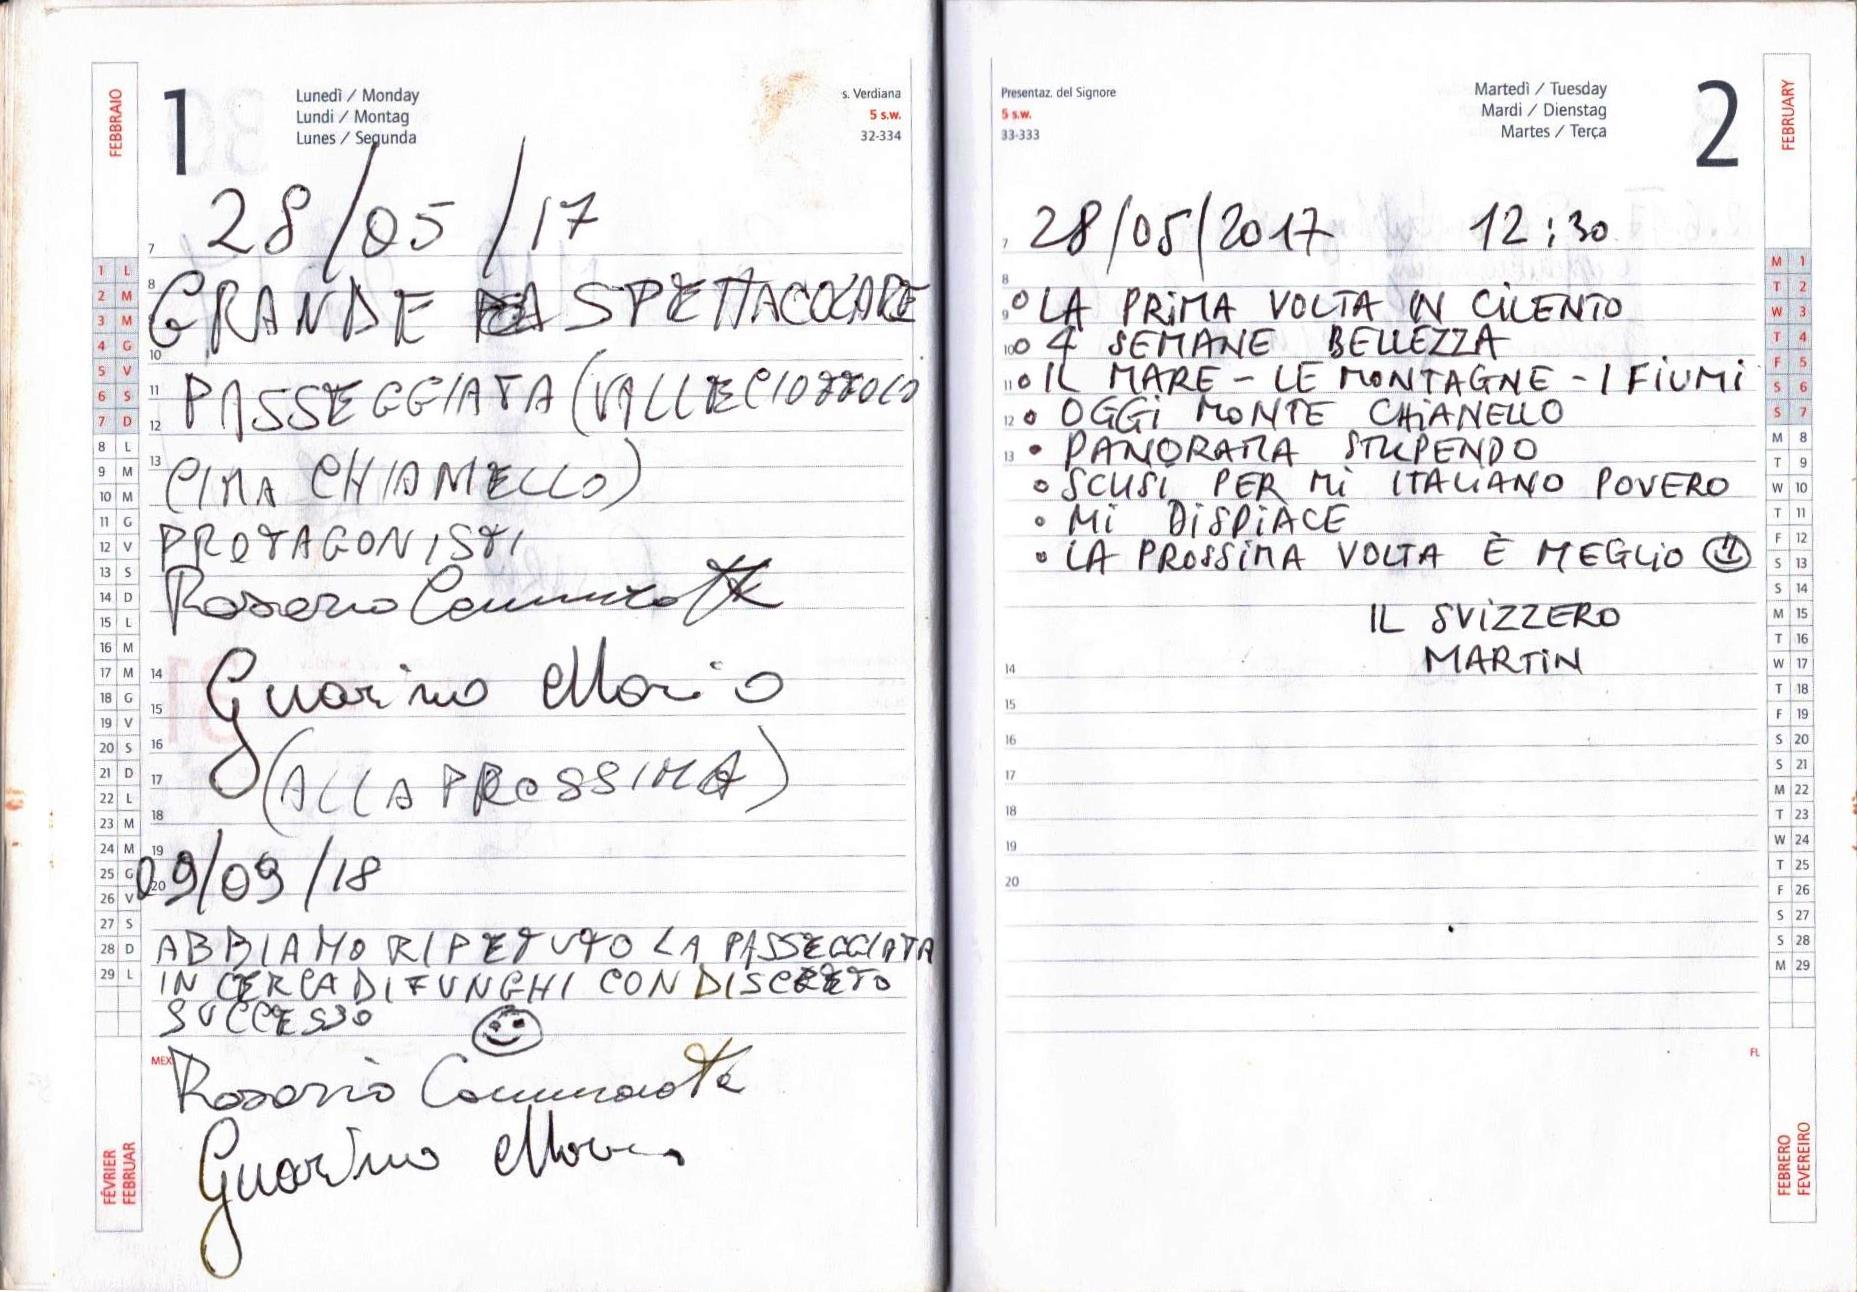 FEBBRAIO
1
Lunedì / Monday
Lundi / Montag
Lunes / Segunda
s. Verdiana
5 s.w.
32-334
28/05/17
GRANDE SPETTACOLARE
PASSEGGIATA (VALLE
CIMA CHIANELLO)
PROTAGONISTI
Rosario Cammarota
Guarino Mario
(ALLA PROSSIMA)
09/09/18
ABBIAMO RIPETUTO LA PASSEGGIATA
IN CERCA DI FUNGHI CON DISCRETO
SUCCESSO ☺
MEX
Rosario Cammarota
Guarino Mario
7
8
10
11
12
13
14
15
16
17
18
19
20
1 L
2 M
3 M
4 G
5 V
6 S
7 D
8 L
9 M
10 M
11 G
12 V
13 S
14 D
15 L
16 M
17 M
18 G
19 V
20 S
21 D
22 L
23 M
24 M
25 G
26 V
27 S
28 D
29 L
FÉVRIER
FEBRUAR
Presentaz. del Signore
5 s.w.
33-333
Martedì / Tuesday
Mardi / Dienstag
Martes / Terça
2
FEBRUARY
28/05/2017 12:30
LA PRIMA VOLTA IN CILENTO
4 SEMANE BELLEZZA
IL MARE - LE MONTAGNE - I FIUMI
OGGI MONTE CHIANELLO
PANORAMA STUPENDO
SCUSI PER MI ITALIANO POVERO
MI DISPIACE
LA PROSSIMA VOLTA È MEGLIO ☺
IL SVIZZERO
MARTIN
7
8
9
10
11
12
13
14
15
16
17
18
19
20
M 1
T 2
W 3
T 4
F 5
S 6
S 7
M 8
T 9
W 10
T 11
F 12
S 13
S 14
M 15
T 16
W 17
T 18
F 19
S 20
S 21
M 22
T 23
W 24
T 25
F 26
S 27
S 28
M 29
FL
FEBRERO
FEVEREIRO